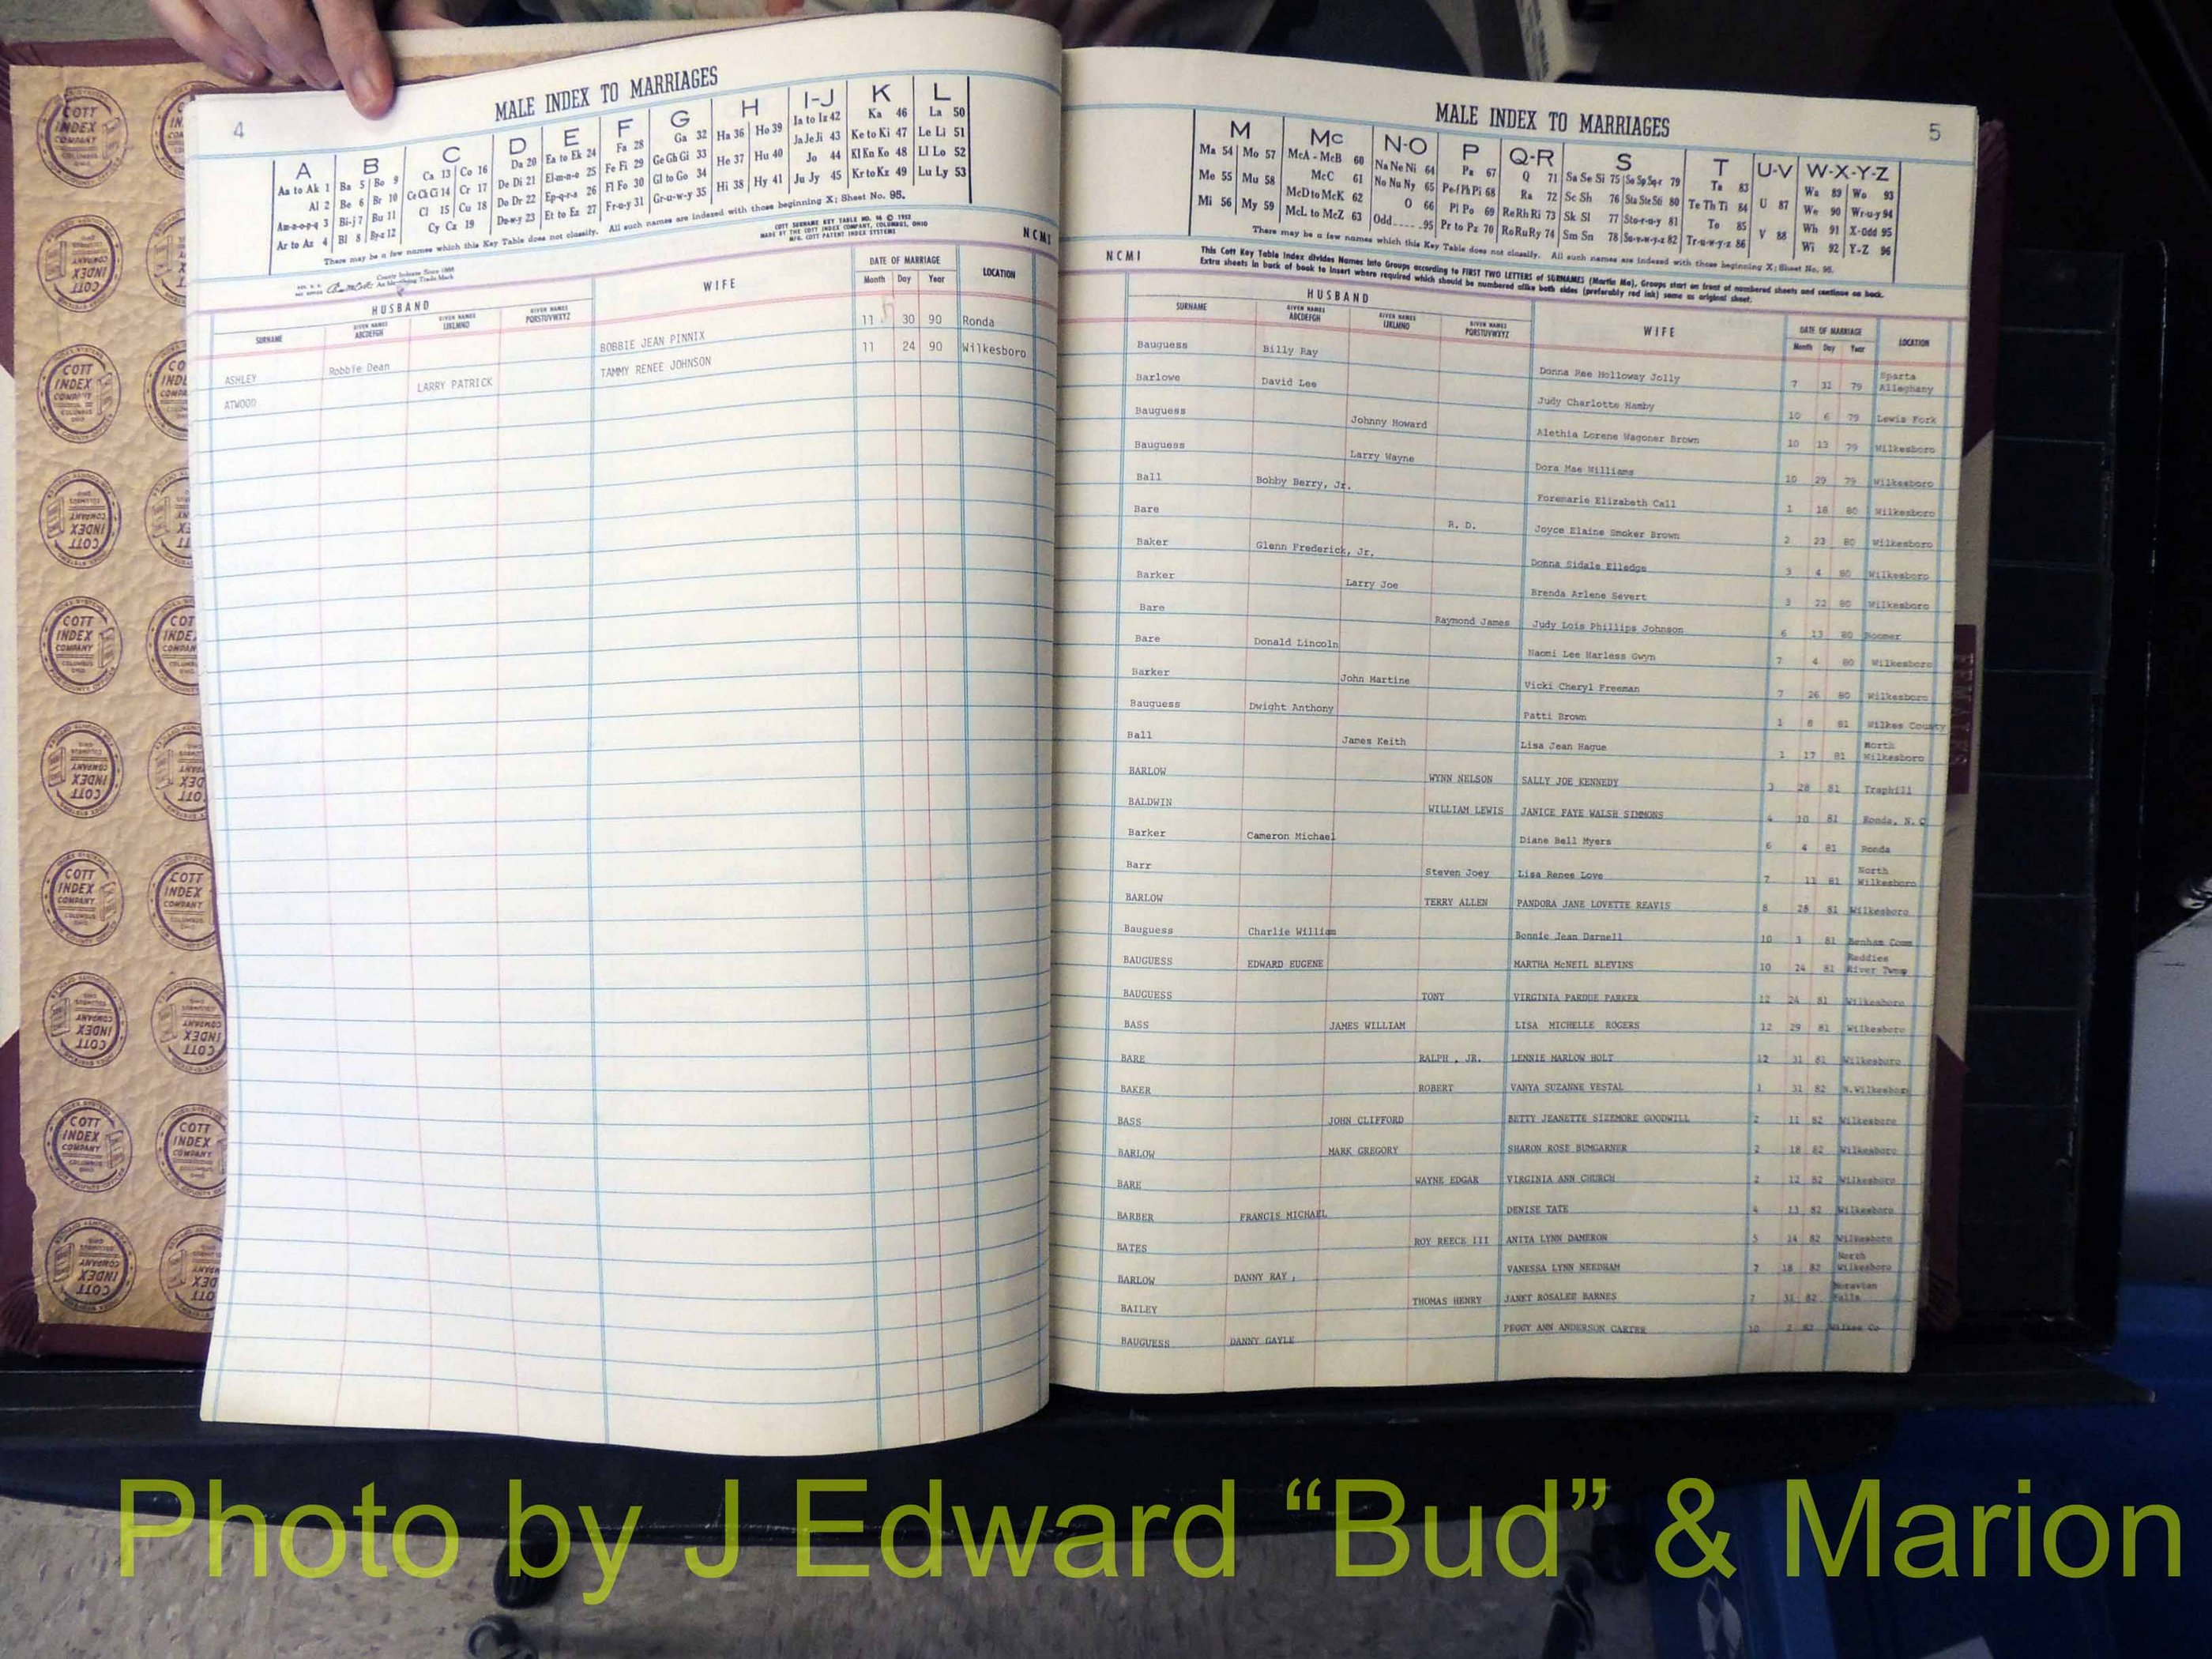 4
MALE INDEX TO MARRIAGES
A B C D E F G H I-J K L
Aa to Ak 1 Ba 5 Bo 9 Ca 13 Co 16 Da 20 Ea to Ek 24 Fa 28 Ga 32 Ha 36 Ho 39 Ia to Iz 42 Ka 46 La 50
Al 2 Be 6 Br 10 Ce Ch Ci 14 Cr 17 De Di 21 El-m-n-o 25 Fe Fi 29 Ge Gh Gi 33 He 37 Hu 40 Ja Je Ji 43 Ke to Ki 47 Le Li 51
Am-n-o-p-q 3 Bi-j 7 Bu 11 Cl 15 Cu 18 Do Dr 22 Ep-q-r-s 26 Fl Fo 30 Gl to Go 34 Hi 38 Hy 41 Jo 44 Kl Kn Ko 48 Ll Lo 52
Ar to Az 4 Bl 8 By-z 12 Cy Cz 19 Du-w-y 23 Et to Ez 27 Fr-u-y 31 Gr-u-w-y 35 Ju Jy 45 Kr to Kz 49 Lu Ly 53
There may be a few names which this Key Table does not classify. All such names are indexed with those beginning X; Sheet No. 95.
COTT SURNAME KEY TABLE NO. 96 © 1952
MADE BY THE COTT INDEX COMPANY, COLUMBUS, OHIO
MFG. COTT PATENT INDEX SYSTEMS
NCMI
County Indexes Since 1888
An Identifying Trade Mark
HUSBAND WIFE DATE OF MARRIAGE LOCATION
SURNAME GIVEN NAMES ABCDEFGH GIVEN NAMES IJKLMNO GIVEN NAMES PQRSTUVWXYZ Month Day Year
ASHLEY Robbie Dean BOBBIE JEAN PINNIX 11 30 90 Ronda
ATWOOD LARRY PATRICK TAMMY RENEE JOHNSON 11 24 90 Wilkesboro
MALE INDEX TO MARRIAGES
5
M Mc N-O P Q-R S T U-V W-X-Y-Z
Ma 54 Mo 57 McA - McB 60 Na Ne Ni 64 Pa 67 Q 71 Sa Se Si 75 So Sp Sq-r 79 Ta 83 U 87 Wa 89 Wo 93
Me 55 Mu 58 McC 61 No Nu Ny 65 Pe-f Ph Pi 68 Ra 72 Sc Sh 76 Sta Ste Sti 80 Te Th Ti 84 We 90 Wr-u-y 94
Mi 56 My 59 McD to McK 62 O 66 Pl Po 69 Re Rh Ri 73 Sk Sl 77 Sto-r-u-y 81 To 85 V 88 Wh 91 X-Odd 95
McL to McZ 63 Odd 95 Pr to Pz 70 Ro Ru Ry 74 Sm Sn 78 Su-v-w-y-z 82 Tr-u-w-y-z 86 Wi 92 Y-Z 96
There may be a few names which this Key Table does not classify. All such names are indexed with those beginning X; Sheet No. 95.
NCMI
This Cott Key Table Index divides Names into Groups according to FIRST TWO LETTERS of SURNAMES (Martin Ma), Groups start on front of numbered sheets and continue on back.
Extra sheets in back of book to insert where required which should be numbered alike both sides (preferably red ink) same as original sheet.
HUSBAND WIFE DATE OF MARRIAGE LOCATION
SURNAME GIVEN NAMES ABCDEFGH GIVEN NAMES IJKLMNO GIVEN NAMES PQRSTUVWXYZ Month Day Year
Bauguess Billy Ray Donna Ree Holloway Jolly 7 31 79 Sparta Alleghany
Barlowe David Lee Judy Charlotte Hamby 10 6 79 Lewis Fork
Bauguess Johnny Howard Alethia Lorene Wagoner Brown 10 13 79 Wilkesboro
Bauguess Larry Wayne Dora Mae Williams 10 29 79 Wilkesboro
Ball Bobby Berry, Jr. Foremarie Elizabeth Call 1 18 80 Wilkesboro
Bare R. D. Joyce Elaine Smoker Brown 2 23 80 Wilkesboro
Baker Glenn Frederick, Jr. Donna Sidale Elledge 3 4 80 Wilkesboro
Barker Larry Joe Brenda Arlene Severt 3 22 80 Wilkesboro
Bare Raymond James Judy Lois Phillips Johnson 6 13 80 Boomer
Bare Donald Lincoln Naomi Lee Harless Gwyn 7 4 80 Wilkesboro
Barker John Martine Vicki Cheryl Freeman 7 26 80 Wilkesboro
Bauguess Dwight Anthony Patti Brown 1 8 81 Wilkes County
Ball James Keith Lisa Jean Hague 1 17 81 North Wilkesboro
BARLOW WYNN NELSON SALLY JOE KENNEDY 3 28 81 Traphill
BALDWIN WILLIAM LEWIS JANICE FAYE WALSH SIMMONS 4 10 81 Ronda, N. C
Barker Cameron Michael Diane Bell Myers 6 4 81 Ronda
Barr Steven Joey Lisa Renee Love 7 11 81 North Wilkesboro
BARLOW TERRY ALLEN PANDORA JANE LOVETTE REAVIS 8 28 81 Wilkesboro
Bauguess Charlie William Bonnie Jean Darnell 10 3 81 Benham Comm
BAUGUESS EDWARD EUGENE MARTHA McNEIL BLEVINS 10 24 81 Reddies River Twnp
BAUGUESS TONY VIRGINIA PARDUE PARKER 12 24 81 Wilkesboro
BASS JAMES WILLIAM LISA MICHELLE ROGERS 12 29 81 Wilkesboro
BARE RALPH , JR. LENNIE MARLOW HOLT 12 31 81 Wilkesboro
BAKER ROBERT VANYA SUZANNE VESTAL 1 31 82 N.Wilkesboro
BASS JOHN CLIFFORD BETTY JEANETTE SIZEMORE GOODWILL 2 11 82 Wilkesboro
BARLOW MARK GREGORY SHARON ROSE BUMGARNER 2 18 82 Wilkesboro
BARE WAYNE EDGAR VIRGINIA ANN CHURCH 2 12 82 Wilkesboro
BARBER FRANCIS MICHAEL DENISE TATE 4 13 82 Wilkesboro
BATES ROY REECE III ANITA LYNN DAMERON 5 14 82 Wilkesboro
BARLOW DANNY RAY, VANESSA LYNN NEEDHAM 7 18 82 North Wilkesboro
BAILEY THOMAS HENRY JANET ROSALEE BARNES 7 31 82 Moravian Falls
BAUGUESS DANNY GAYLE PEGGY ANN ANDERSON CARTER 10 2 82 Wilkes Co
COTT INDEX COMPANY
COLUMBUS OHIO
Photo by J Edward “Bud” & Marion